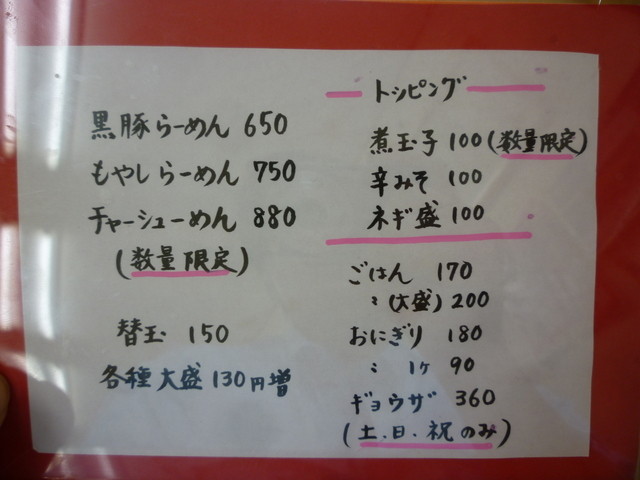 黒豚らーめん 650
もやしらーめん 750
チャーシューめん 880
(数量限定)
替玉 150
各種大盛130円増
トッピング
煮玉子 100(数量限定)
辛みそ 100
ネギ盛 100
ごはん 170
〃(大盛)200
おにぎり 180
〃 1ヶ 90
ギョウザ 360
(土.日.祝のみ)